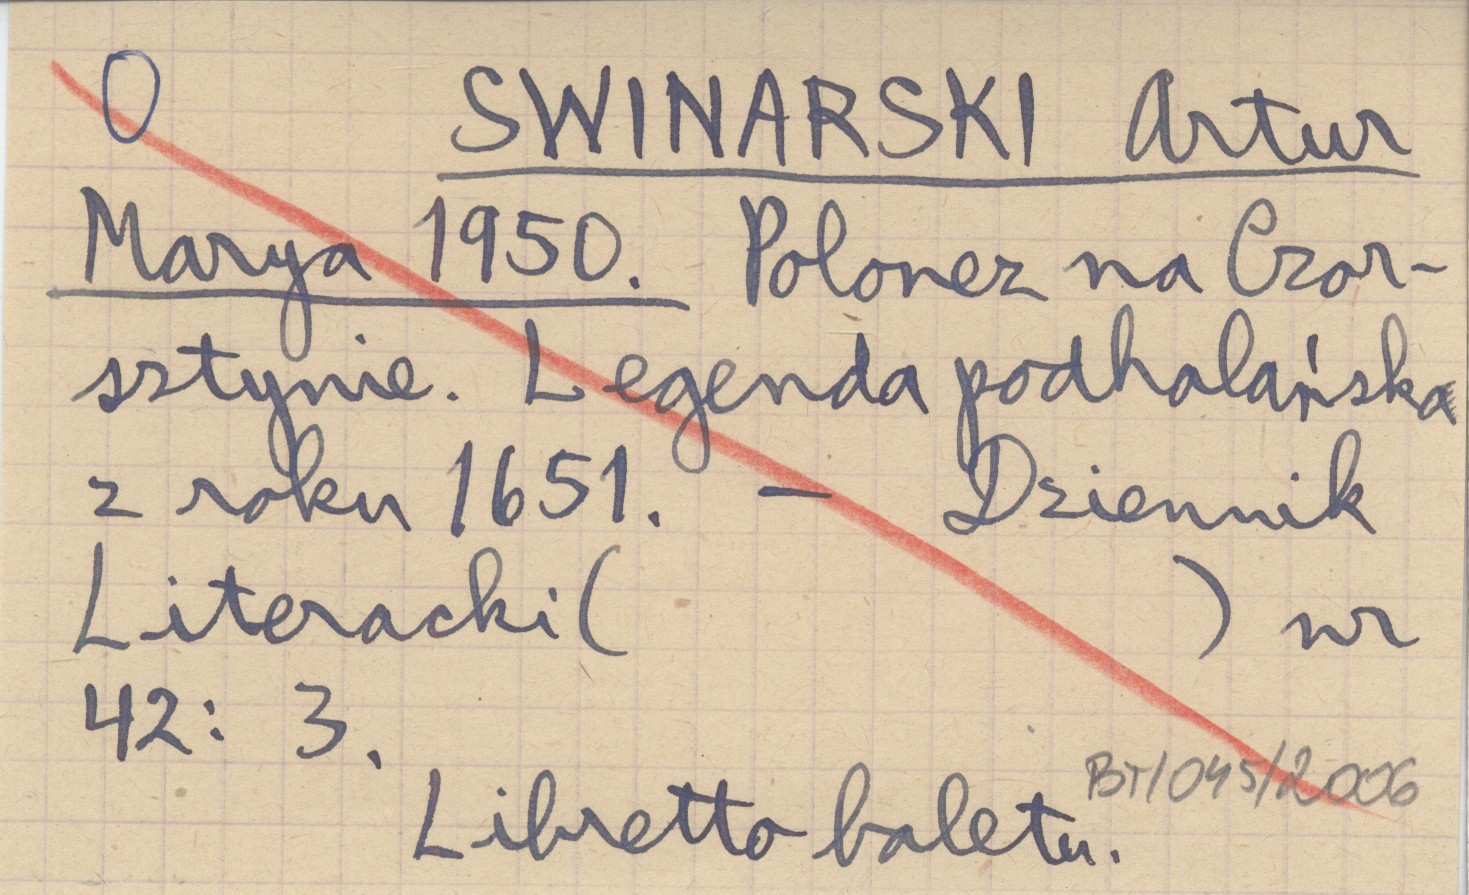 O SWINARSKI Artur
Marya 1950. Polonez na Czor-
sztynie. Legenda podhalańska
z roku 1651. — Dziennik
Literacki ( ) nr
42: 3.
Libretto baletu.
BT/045/2006